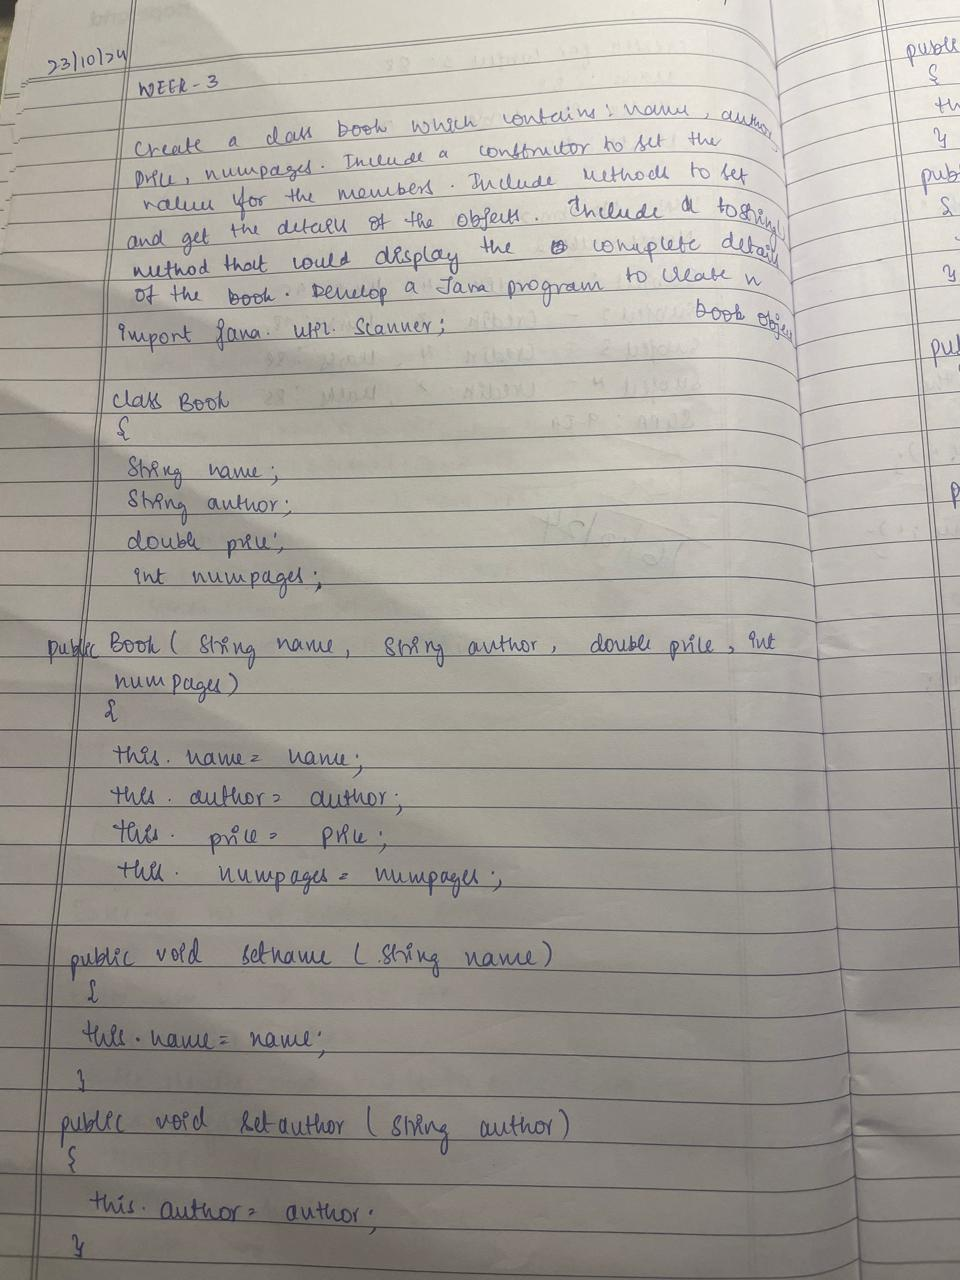 23/10/24
WEEK - 3
Create a class book which contains : name, author,
price, numpages. Include a constructor to set the
values for the members. Include methods to set
and get the details of the objects. Include a toString
method that could display the complete details
of the book. Develop a Java program to create n
book objects
import java. util. Scanner;
class Book
{
String name;
String author;
double price;
int numpages;
public Book ( String name, String author, double price, int
numpages)
{
this. name = name;
this. author = author;
this. price = price;
this. numpages = numpages;
public void setname ( String name)
{
this. name = name;
}
public void setauthor ( String author)
{
this. author = author;
}
publ
{
th
}
publ
{
}
pul
p